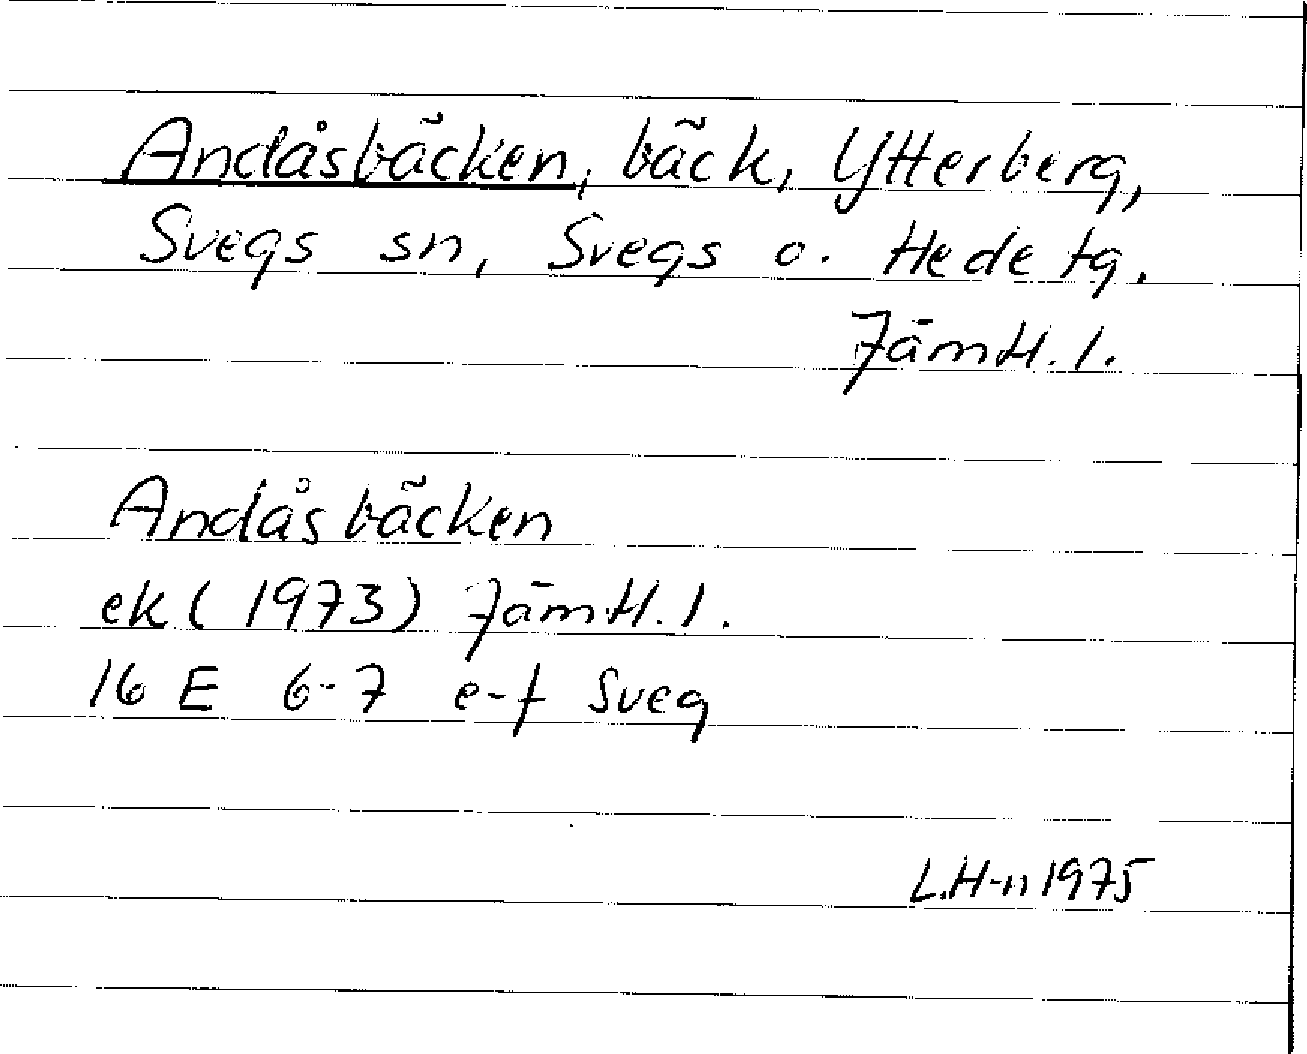 Andåsbäcken, bäck, Ytterberg,
Svegs sn, Svegs o. Hede tg.
Jämtl. l.
Andåsbäcken
ek (1973) Jämtl. l.
16 E 6-7 e-f Sveg
L.H-n 1975